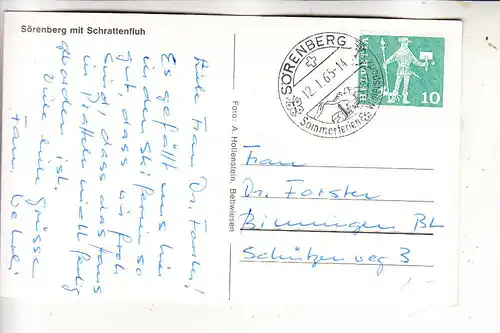 Sörenberg mit Schrattenfluh
Liebe Frau Dr. Forster!
Es gefällt uns hier
in den Skiferien so
gut, dass wir froh
sind, dass das Haus
in Pratteln nicht fertig
geworden ist.
Viele liebe Grüsse
Fam.
Foto: A. Hollenstein, Bettwiesen
SÖRENBERG
12.1.65-14
Sommerferien &
10
Frau
Dr. Forster
Binningen BL
Schützenweg 3